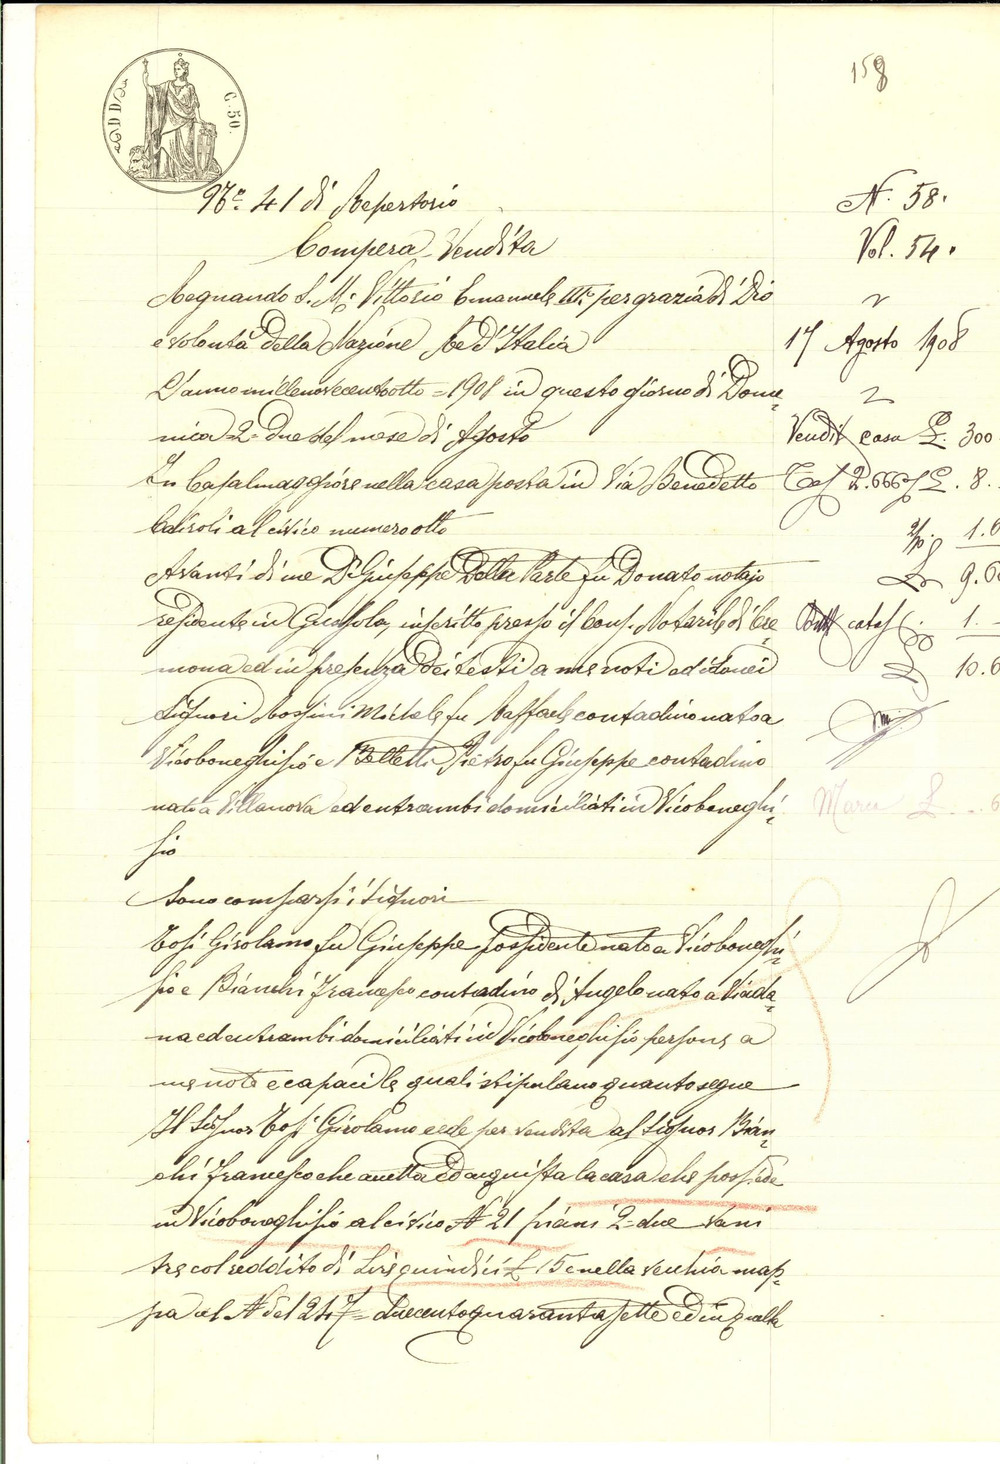 158
C. 50.
N.o 41 di Repertorio
N. 58.
Compera-Vendita
Vol. 54.
Regnando S. M. Vittorio Emanuele III.o per grazia di Dio
e volontà della Nazione Re d'Italia
17 Agosto 1908
L'anno millenovecentootto = 1908 in questo giorno di Dome=
nica 2= due del mese di Agosto
Vendit casa £. 300
In Casalmaggiore nella casa posta in Via Benedetto
£. 8.
Cairoli al civico numero otto
1.6
Avanti di me Dr Giuseppe Della Parte fu Donato notajo
9.6
residente in Gussola, inscritto presso il Cons. Notarile di Cre=
catas 1.
mona ed in presenza dei testi a me noti ed idonei
10.6
Signori Rossini Michele fu Raffaele contadino nato a
Vicoboneghisio e Belletti Pietro fu Giuseppe contadino
nato a Villanova ed entrambi domiciliati in Vicoboneghi=
sio
Sono comparsi i Signori
Tosi Girolamo fu Giuseppe possidente nato a Vicoboneghi=
sio e Bianchi Francesco contadino di Angelo nato a Viada=
na ed entrambi domiciliati in Vicoboneghisio persone a
me note e capaci le quali stipulano quanto segue
Il Signor Tosi Girolamo cede per vendita al Signor Bian=
chi Francesco che accetta ed acquista la casa che possiede
in Vicoboneghisio al civico N 21 piani 2= due vani
tre col reddito di Lire quindici £ 15 e nella vecchia map=
pa al N del 247= duecentoquarantasette ed in quella